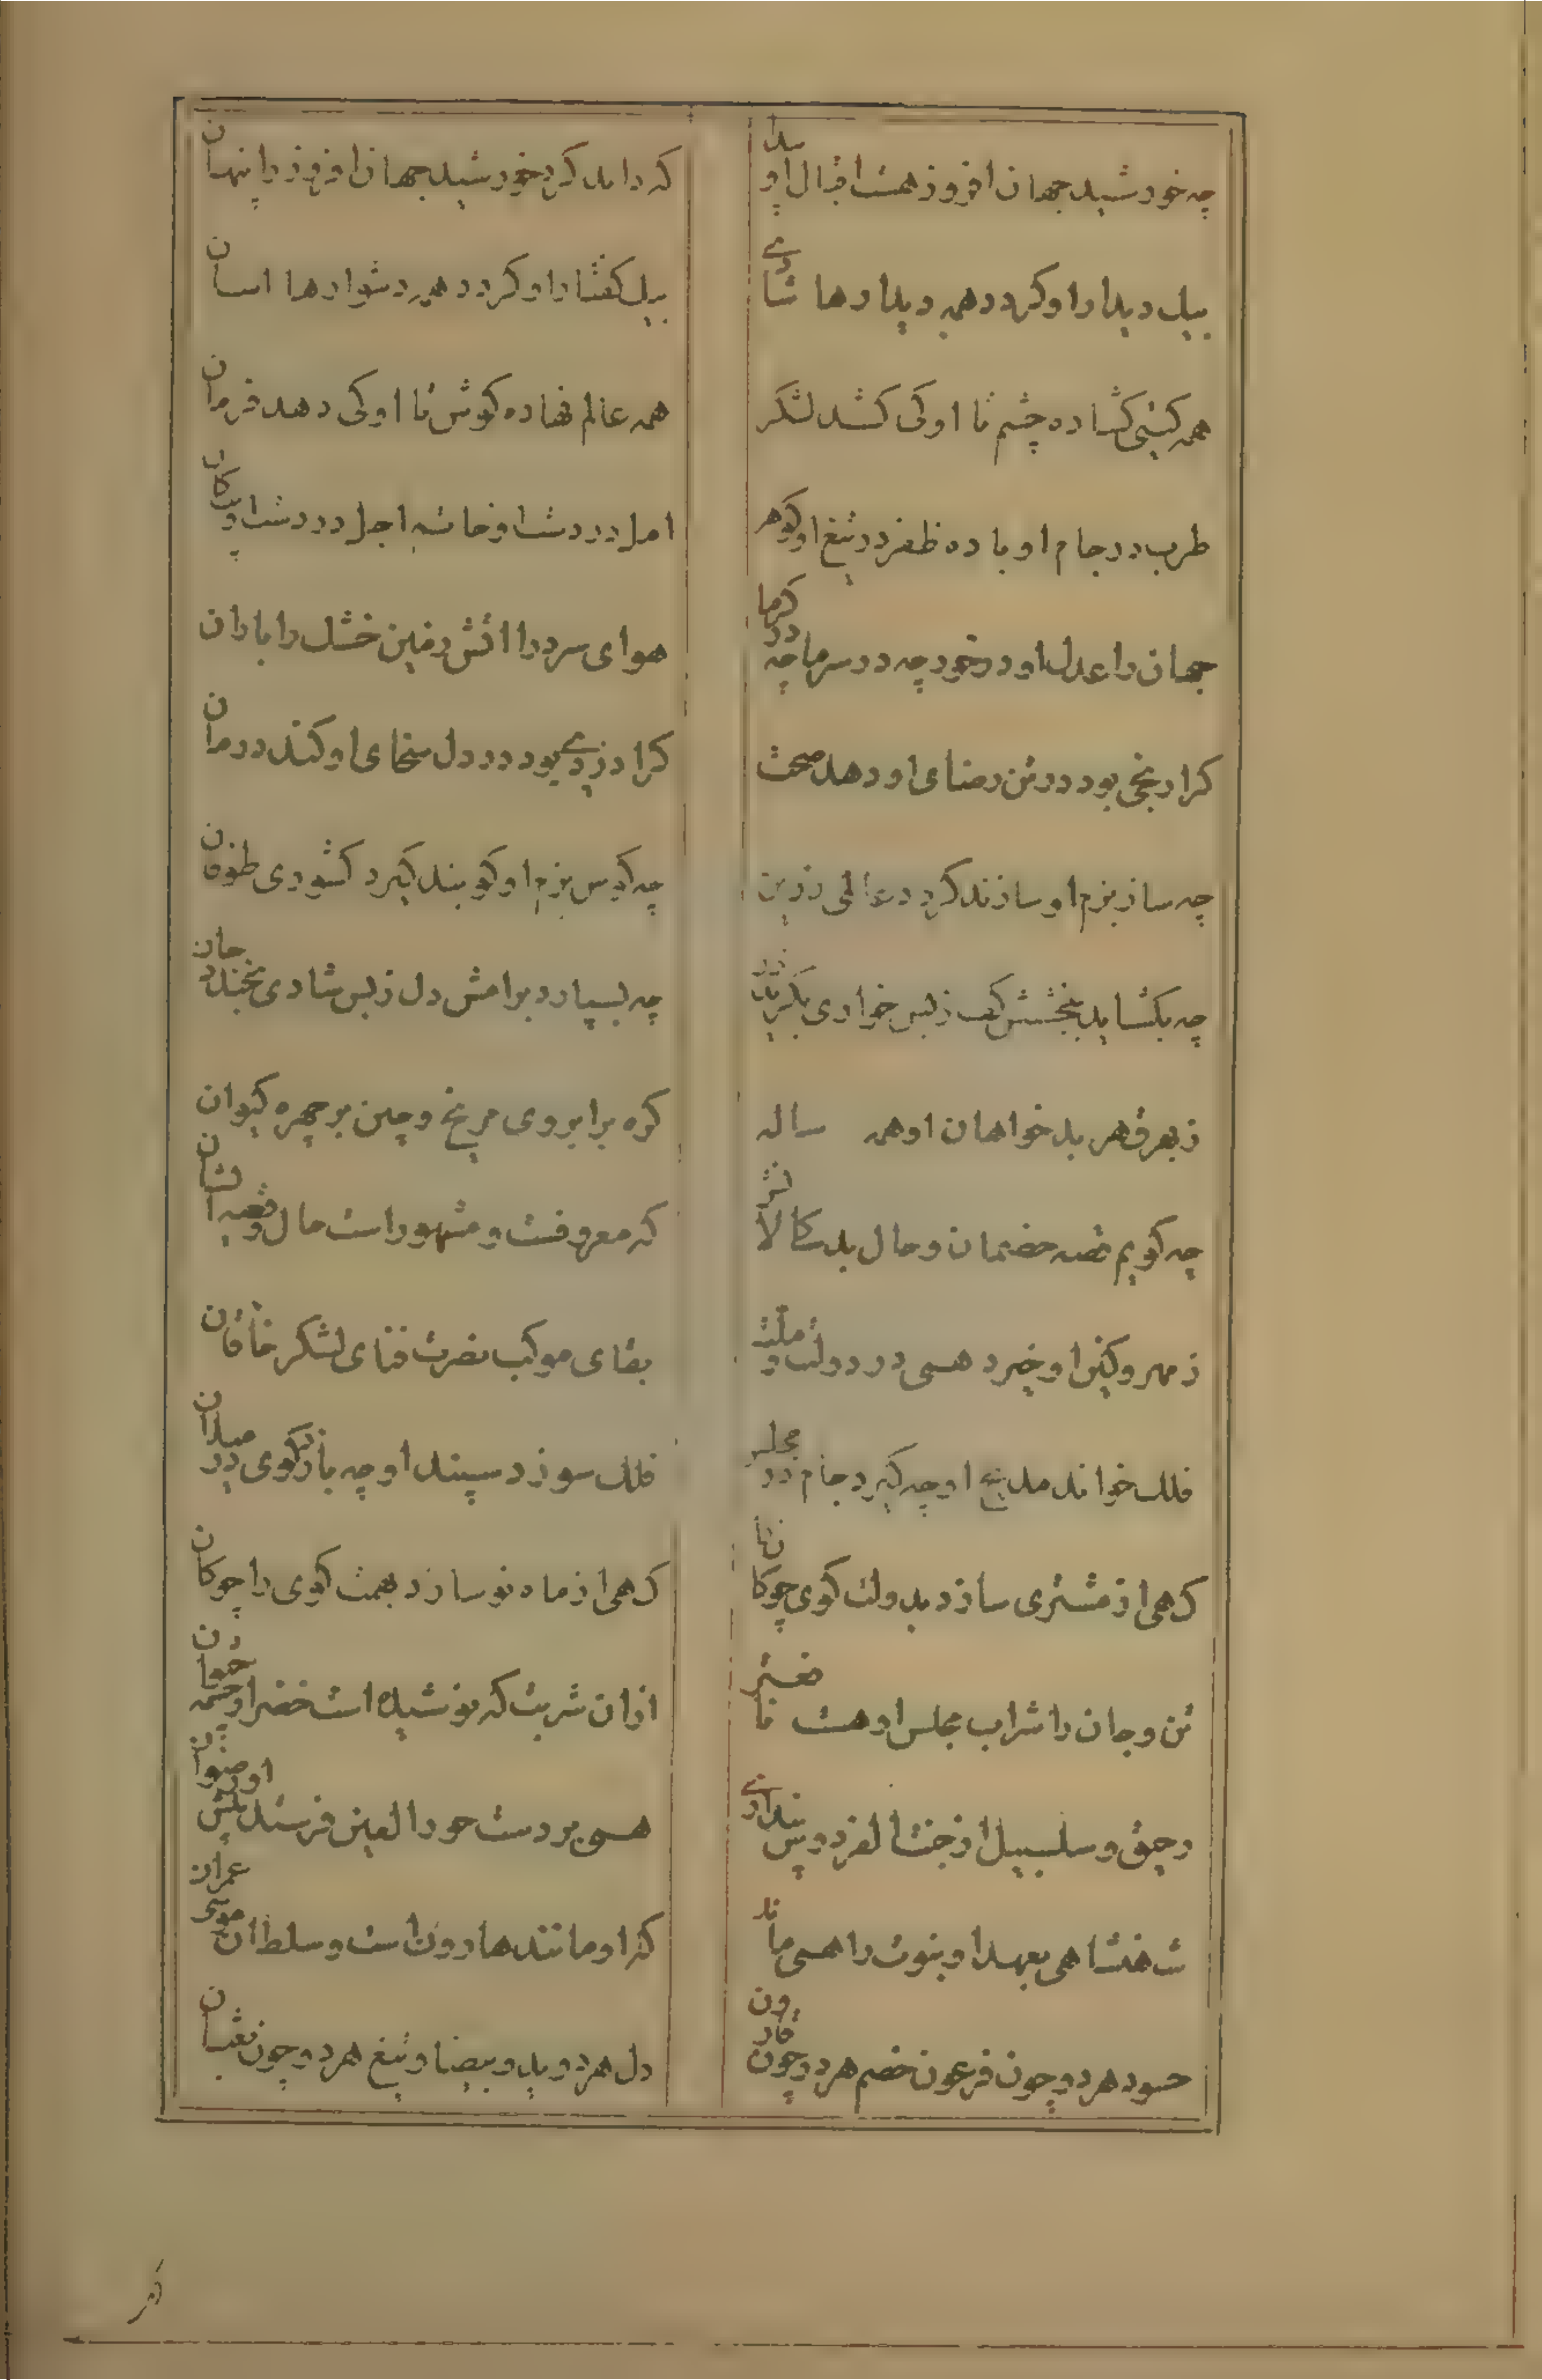 چه خورشید جهان افروز هست اقبال او پیدا
که داند کرد خورشید جهان افروز را پنهان
بیک دیدار او کردد همه دیدارها شادی
بیک کفتار او کردد همه دشوارها اسان
همه کیتی کشاده چشم تا او کی کشد لشکر
همه عالم نهاده کوش تا او کی دهد فرمان
طرب در جام او باده ظفر در تیغ او کوهر
امل در دست او خامه اجل در دست او پیکان
جهان را عدل او درخورد چه در سرما چه در کرما
هوای سرد را اتش زمین خشک را باران
کرا رنجی بود در تن رضای او دهد صحت
کرا دردی بود در دل سخای او کند درمان
چه ساز بزم او سازند کردد عالمی زرین
چه کوس بزم او کوبند کیرد کشوری طوفان
چه بکشاید ببخشش کف ز بس خواری بکرید زر
چه بسپارد برامش دل ز بس شادی بخندد جان
ز بهر قهر بدخواهان او همه ساله
کره بر ابروی مریخ و چین بر چهره کیوان
چه کویم قصه خصمان و حال بدسکالانش
که معروفست و مشهور است حال و قصه ایشان
ز مهر و کین او خیزد همی در دولت و ملت
بقای موکب نصرت فنای لشکر خاقان
فلک خواند مدیح او چه کیرد جام در مجلس
فلک سوزد سپند او چه بازد کوی در میدان
کهی از مشتری سازد بدولت کوی چوکانها
کهی از ماه نو سازد بهمت کوی را چوکان
تن و جان را شراب مجلس او هست نافعتر
ازان شربت که نوشیده است خضر از چشمه حیوان
رحیق و سلسبیل از جنت الفردوس پنداری
همی بر دست حور العین فرستد پیش او رضوان
شهنشاهی بعهد او نبوت را همی ماند
که او مانند هارون است و سلطان موسی عمران
حسود هر دو چون فرعون خصم هر دو چون قارون
دل هر دو ید و بیضا و تیغ هر دو چون ثعبان